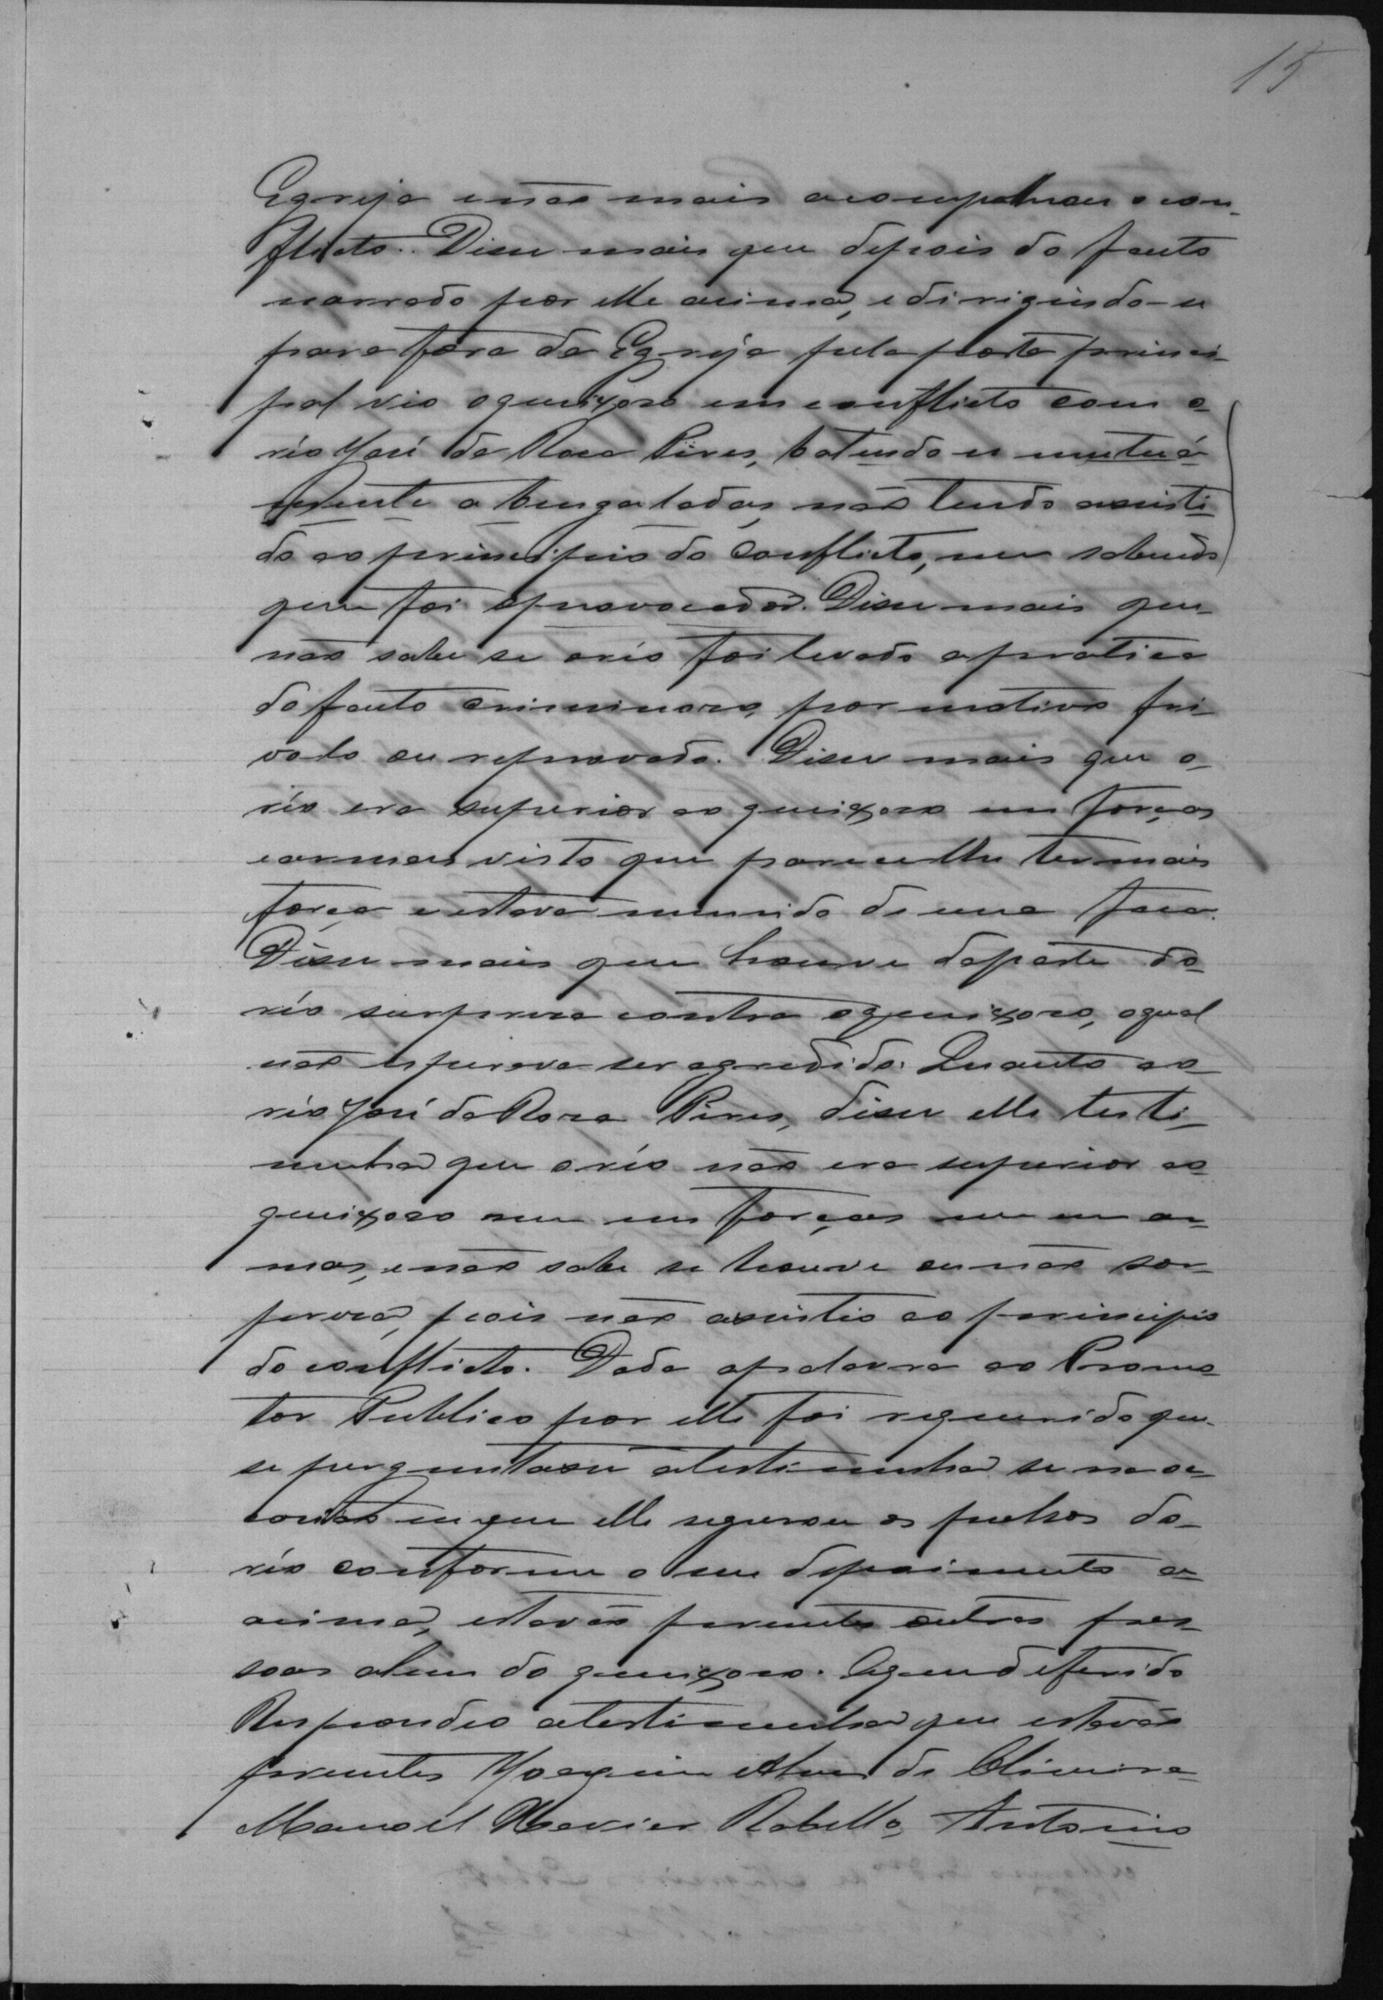 15
Egreja e não mais acompanhou o con-
flicto. Disse mais que depois do facto
narrado por elle acima, e dirigindo-se
para fora da Egreja pela porta princi-
pal vio o queixoso em conflicto com o
réo José da Rosa Pires, batendo-se mutua-
mente a bengaladas, não tendo assisti-
do ao principio do conflicto, nem sabendo
quem foi o provocador. Disse mais que
não sabe se o réo foi levado a pratica
do facto criminoso, por motivo fri-
volo ou reprovado. Disse mais que o
réo era superior ao queixoso em forças
e armas visto que parece lhe ter mais
força e estava munido de uma faca.
Disse mais que houve da parte do
réo surpreza contra o queixoso, o qual
não esperava ser agredido. Quanto ao
réo José da Rosa Pires, disse elle teste-
munha que o réo não era superior ao
queixoso nem em forças nem em ar-
mas, e não sabe se houve ou não sor-
preza, pois não assistio ao principio
do conflicto. Dada a palavra ao Promo-
tor Publico por elle foi requerido que
se perguntasse a testemunha se na oc-
casião em que elle segurou os pulsos do
réo conforme o seu depoimento a-
cima, estavão presentes outras pes-
soas alem do queixoso. O que deferido
Respondeo a testemunha que estavão
presentes Joaquim Alves de Oliveira
Manoel Xavier Rabello, Antonio